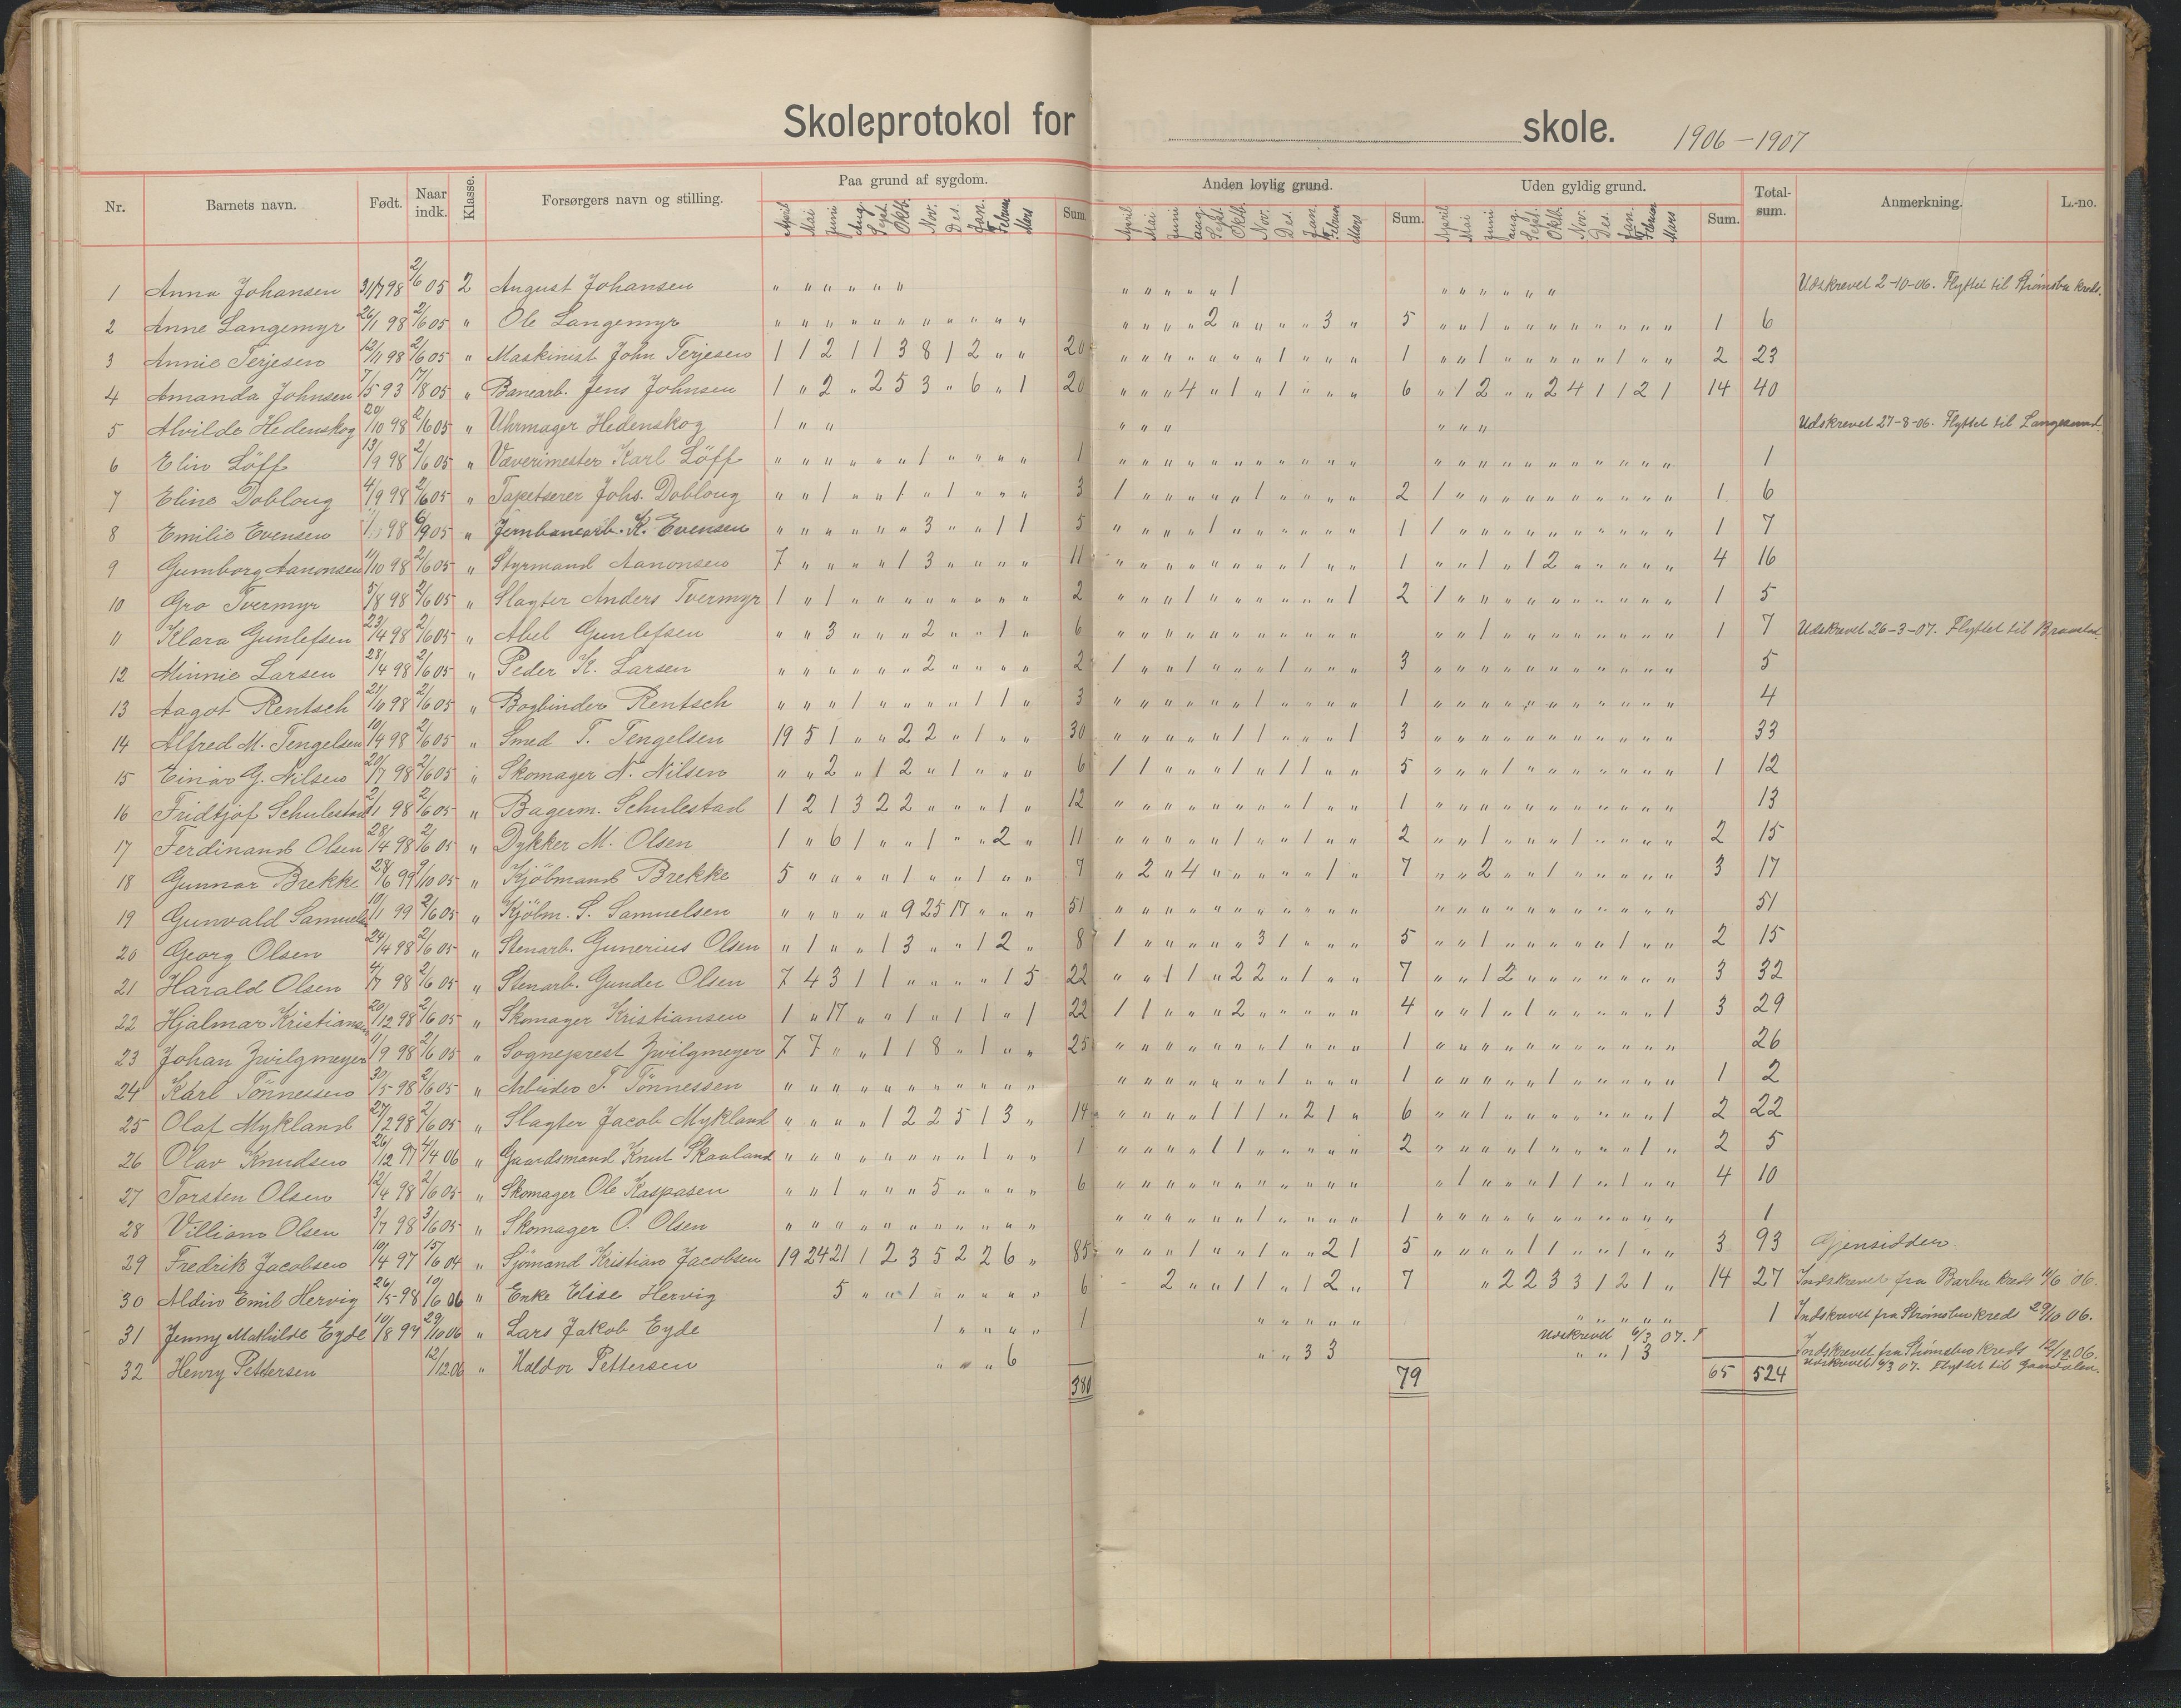 Skoleprotokol for skole. 1906–1907
Nr. Barnets navn. Født. Naar indk. Klasse. Forsørgers navn og stilling. Paa grund af sygdom. Anden lovlig grund. Uden gyldig grund. Total-sum. Anmerkning. L.-no.
April Mai Juni Aug. Sept. Oktb. Nov. Des. Jan. Februar Mars Sum. April Mai Juni Aug. Sept. Oktb. Nov. Des. Jan. Februar Mars Sum. April Mai Juni Aug. Sept. Oktb. Nov. Des. Jan. Februar Mars Sum.
1 Anna Johansen 31/7 98 2/6 05 2 August Johansen " " " " " " " " " " " 1 " " " " " " Udskrevet 2-10-06. Flyttet til Strømsbu kreds.
2 Anne Langemyr 26/1 98 2/6 05 " Ole Langemyr " " " " " " " " " " " " " " " 2 " " " " 3 " 5 " " 1 " " " " " " " " 1 6
3 Annie Terjesen 12/11 98 2/6 05 " Maskinist John Terjesen 1 1 2 1 1 3 8 1 2 " " 20 " " " " " " " 1 " " " 1 " " 1 " " " " " 1 " " 2 23
4 Amanda Johnsen 7/5 93 17/8 05 " Banearb. Jens Johnsen 1 " 2 " 2 5 3 " 6 " 1 20 " " " 4 " 1 " 1 " " " 6 " 1 2 " " 2 4 1 1 2 1 14 40
5 Alvilde Hedenskog 20/10 98 2/6 05 " Uhrmager Hedenskog 1 " " " " " " " " Udskrevet 27-8-06. Flyttet til Langesund.
6 Elin Löff 13/9 98 2/6 05 " Væverimester Karl Löff " " " " " " 1 " " " " 1 " " " " " " " " " " " " " " " " " " " " " " 1
7 Eline Dobloug 4/9 98 2/6 05 " Tapetserer Johs. Dobloug " " 1 " " 1 " 1 " " " 3 1 " " " " " 1 " " " " 2 1 " " " " " " " " " " 1 6
8 Emilie Evensen 98 6/9 05 " Jernbanearb. K. Evensen " " " " " " 3 " " 1 1 5 " " " " 1 " " " " " " 1 1 " " " " " " " " " " 1 7
9 Gumborg Aanonsen 11/10 98 2/6 05 " Styrmand Aanonsen 7 " " " " 1 3 " " " " 11 " " " " " " " " 1 " " 1 " " 1 " 1 2 " " " " " 4 16
10 Gro Tvermyr 5/8 98 2/6 05 " Slagter Anders Tvermyr 1 " 1 " " " " " " " " 2 " " " 1 " " " " " " 1 2 1 " " " " " " " " " " 1 5
11 Klara Gunlefsen 23/4 98 2/6 05 " Abel Gunlefsen " " 3 " " " 2 " " 1 " 6 " " " " " " " " " " " " " 1 " " " " " " " " 1 7 Udskrevet 26-3-07. Flyttet til
12 Minnie Larsen 28/4 98 2/6 05 " Peder K. Larsen " " " " " " 2 " " " " 2 1 " " 1 " " " 1 " " " 3 " " " " " " " " " " " 5
13 Aagot Rentsch 21/10 98 2/6 05 " Bogbinder Rentsch " " " 1 " " " " 1 1 " 3 " " " " " " 1 " " " " 1 " " " " " " " " " " " 4
14 Alfred M. Tengelsen 10/4 98 2/6 05 " Smed T. Tengelsen 19 5 1 " " 2 2 " 1 " " 30 " " " " " 1 1 " " " 1 3 " " " " " " " " " " " 33
15 Einar G. Nilsen 20/7 98 2/6 05 " Skomager N. Nilsen " " 2 " 1 2 " 1 " " " 6 1 1 " " " 1 " 1 1 " " 5 " " " 1 " " " " " " " 1 12
16 Fridtjof Schulestad 2/1 98 2/6 05 " Bagerm. Schulestad 1 2 1 3 2 2 " " " 1 " 12 " " " " " " " " 1 " " 1 " " " " " " " " " " " 13
17 Ferdinand Olsen 28/4 98 2/6 05 " Dykker M. Olsen 1 " 6 1 " " 1 " " 2 " 11 " " " " " 1 " " 1 " " 2 " " 1 " " " 1 " " " " 2 15
18 Gunnar Brekke 28/6 99 9/10 05 " Kjöbmand Brekke 5 " " " " 1 " " 1 " " 7 " 2 " 4 " " " " " 1 " 7 " " 2 " " 1 " " " " " 3 17
19 Gunvald Samuels 10/1 99 2/6 05 " Kjöbm. S. Samuelsen " " " " " 9 25 17 " " " 51 " " " " " " " " " " " " " " " " " " " " " " 51
20 Georg Olsen 24/4 98 2/6 05 " Stenarb. Gunerius Olsen " 1 " " 1 3 " " 1 2 " 8 1 " " " " " 3 1 " " " 5 " " 1 " " " " " 1 " " 2 15
21 Harald Olsen 4/7 98 2/6 05 " Stenarb. Gunder Olsen 7 4 3 1 1 " " " " 1 5 22 " " 1 1 " 2 2 " 1 " " 7 " " 1 2 " " " " " " " 3 32
22 Hjalmar Kristiansen 20/12 98 2/6 05 " Skomager Kristiansen 1 " 17 " " 1 " 1 1 " 1 22 1 1 " " " 2 " " " " " 4 " " 1 " 1 " " " " " 1 3 29
23 Johan Zwilgmeyer 11/9 98 2/6 05 " Sogneprest Zwilgmeyer 7 7 " " 1 1 8 " 1 " " 25 " " " " " " " 1 " " " 1 " " " " " " " " " " " 26
24 Karl Tönnessen 30/5 98 2/6 05 " Arbeider T. Tönnessen " " " " " " " " " " " " " " " " " " 1 " " " 1 " " " " " 1 " " " " " 1 2
25 Olaf Mykland 27/2 98 2/6 05 " Slagter Jacob Mykland " " " " 1 2 2 5 1 3 " 14 " " " " 1 1 1 " 2 1 " 6 " " 1 " " " " " " " 1 2 22
26 Olav Knudsen 26/12 97 4/4 06 " Gaardsmand Knut Skaaland " " " " " " " " 1 " " 1 " " " " 1 1 " " " " " 2 " " " " 1 " " " " 1 " 2 5
27 Torsten Olsen 12/4 98 2/6 05 " Skomager Ole Kaspasen " " 1 " " " 5 " " " " 6 " " " " " " " " " " " " 1 " " " 1 1 " 1 " " 4 10
28 Villiam Olsen 3/7 98 3/6 05 " Skomager O. Olsen " " " " " " " " " " " " " " " " " 1 " " " " 1 " " " " " " " " " " " 1
29 Fredrik Jacobsen 10/4 97 15/6 04 " Sjömand Kristian Jacobsen 19 24 21 1 2 3 5 2 2 6 " 85 " " " 1 " " 1 " " 2 1 5 " " " " 1 1 " " 1 " " 3 93 Gjensidden
30 Aldin Emil Hervig 26/5 98 10/6 06 " Enke Elise Hervig 5 " " 1 " " " " " 6 2 " " 1 1 " 1 2 " 7 " 2 2 3 3 1 2 1 " 14 27 Indskrevet fra Barbu kreds 11/6 06.
31 Jenny Mathilde Eyde 10/8 97 29/10 06 " Lars Jakob Eyde 1 " " " " 1 " " " " " " " " " " 1 Indskrevet fra Strømsbu kred 29/10 06.
Udskrevet 6/3 07.
32 Henry Pettersen 12/12 06 " Haldor Pettersen " " " 6 " " 3 3 " " 1 3 Indskrevet fra Strømsbu kreds 12/12 06.
380 79 65 524 Udskrevet 6/3 07. Flyttet til